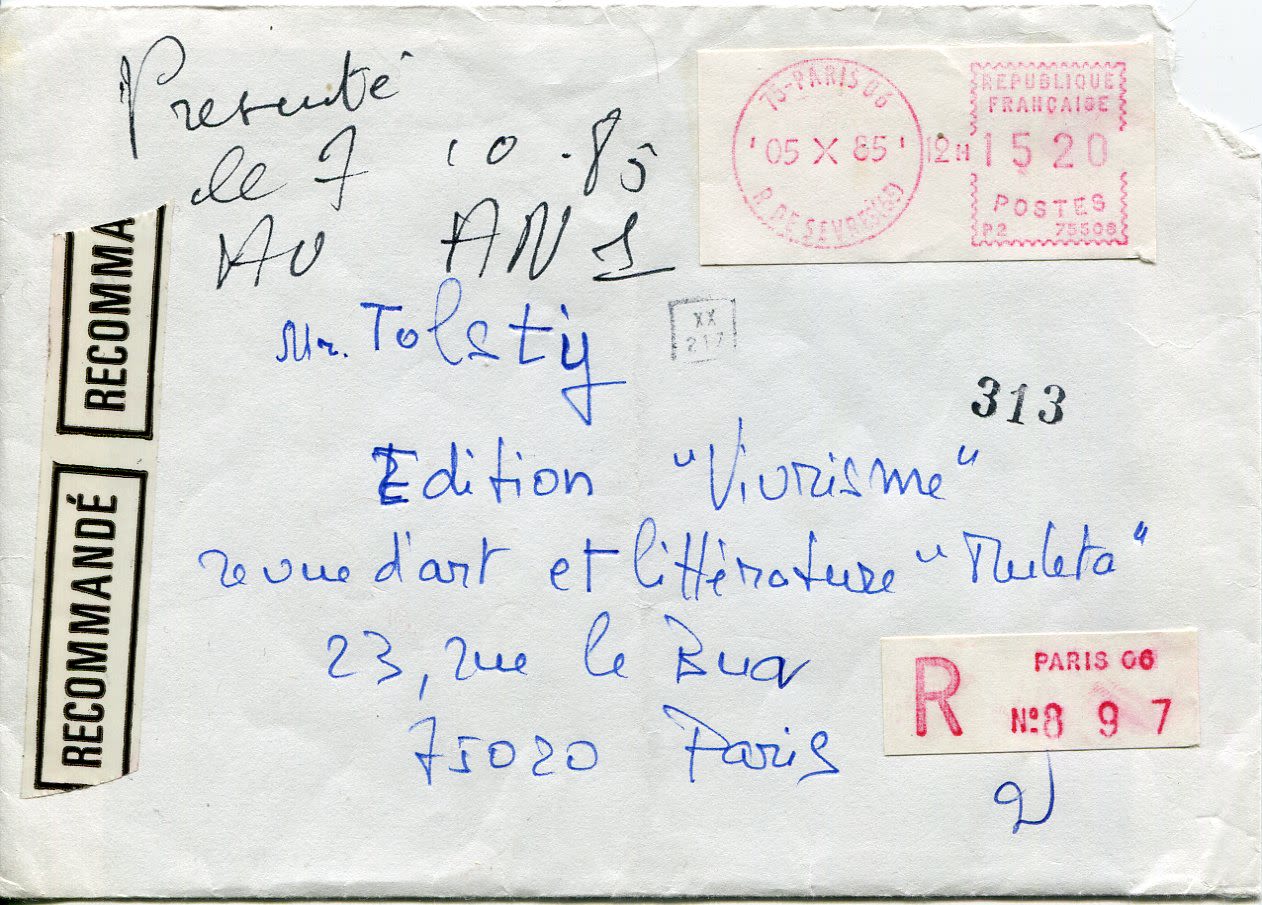 Presenté
le 7 10.85
AU AN 1
75-PARIS 06
'05 X 85'
R. DE SEVRES(6E)
12H
REPUBLIQUE
FRANÇAISE
1520
POSTES
P2 75508
RECOMMA
RECOMMANDÉ
Mr. Tolstiy
XX
217
313
Edition "Vivrisme"
revue d'art et littérature "Muleta"
23, rue le Bua
75020 Paris
R
PARIS 06
Nº8 9 7